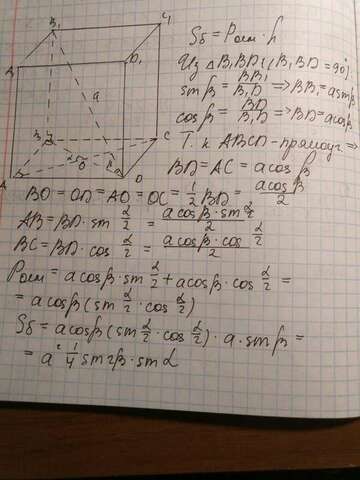 B₁ C₁
A₁ D₁
a
B C
α O β
A D
Sб = Pосн · h
Из △B₁BD: (∠B₁BD = 90°)
sin β = BB₁/B₁D => BB₁ = a sin β
cos β = BD/B₁D => BD = a cos β
Т. к ABCD - прямоуг. =>
BD = AC = a cos β
BO = OD = AO = OC = 1/2 BD = a cos β/2
AB = BD · sin α/2 = a cos β · sin α/2 / 2
BC = BD · cos α/2 = a cos β · cos α/2 / 2
Pосн = a cos β · sin α/2 + a cos β · cos α/2 =
= a cos β (sin α/2 · cos α/2)
Sб = a cos β (sin α/2 · cos α/2) · a · sin β =
= a² 1/4 sin 2β · sin α